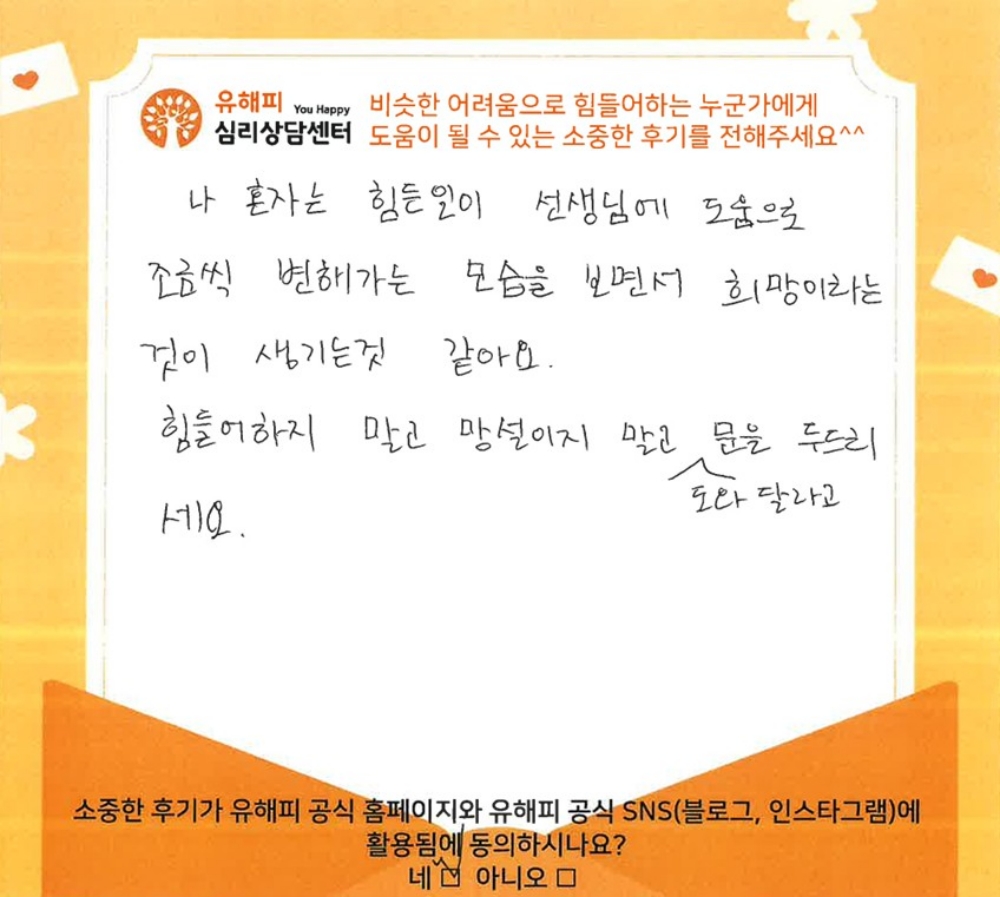 유해피 You Happy
심리상담센터
비슷한 어려움으로 힘들어하는 누군가에게
도움이 될 수 있는 소중한 후기를 전해주세요^^
나 혼자는 힘든일이 선생님에 도움으로
조금씩 변해가는 모습을 보면서 희망이라는
것이 생기는것 같아요.
힘들어하지 말고 망설이지 말고 문을 두드리
도와 달라고
세요.
소중한 후기가 유해피 공식 홈페이지와 유해피 공식 SNS(블로그, 인스타그램)에
활용됨에 동의하시나요?
네 ☑ 아니오 □